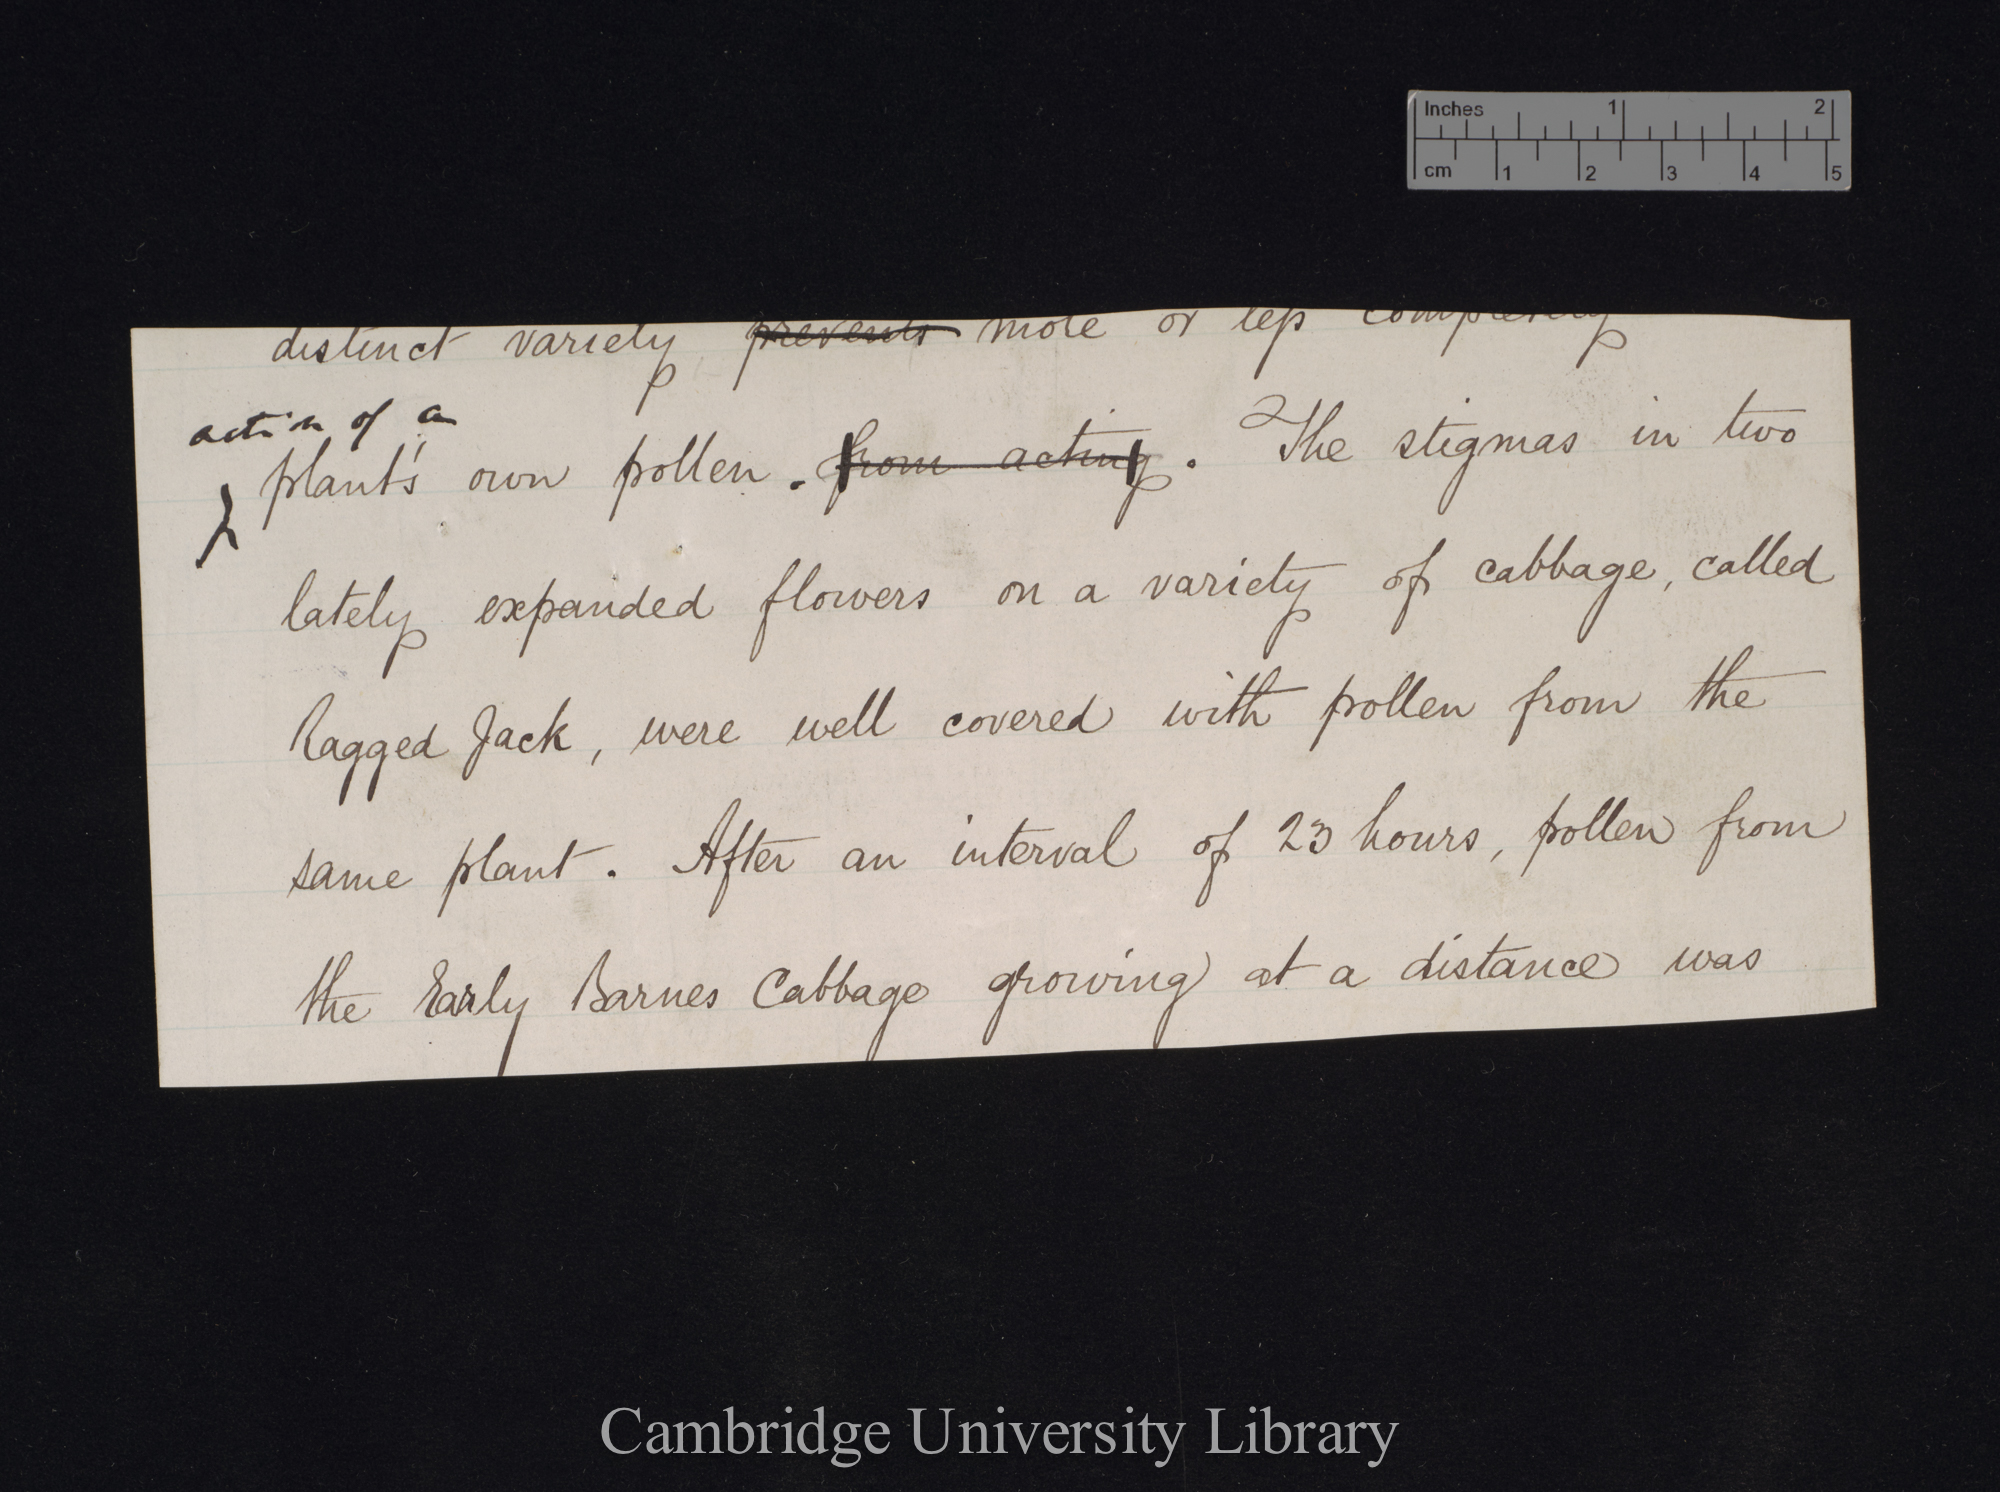 Inches 1 2
cm 1 2 3 4 5
distinct variety prevents more or less completely
action of a
plant's own pollen. from acting. The stigmas in two
lately expanded flowers on a variety of cabbage, called
Ragged Jack, were well covered with pollen from the
same plant. After an interval of 23 hours, pollen from
the Early Barnes Cabbage growing at a distance was
Cambridge University Library